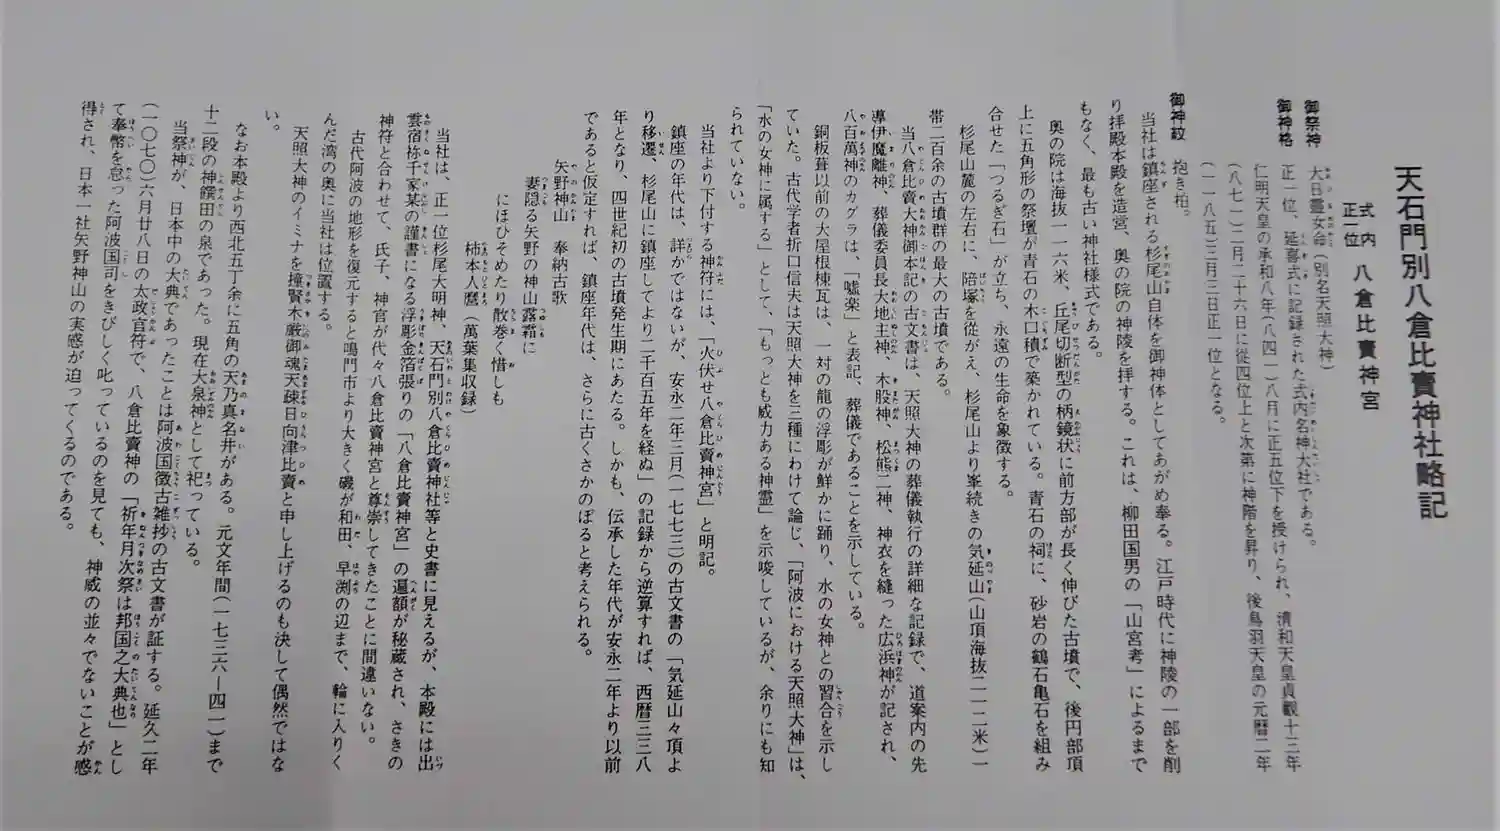 天石門別八倉比賣神社略記
式内
正一位
八倉比賣神宮
御祭神　大日孁女命(別名天照大神)
御神格　正一位、延喜式に記録された式内名神大社である。
仁明天皇の承和八年(八四一)八月に正五位下を授けられ、清和天皇貞観十三年
(八七一)二月二十六日に従四位上と次第に神階を昇り、後鳥羽天皇の元暦二年
(一一八五)三月三日正一位となる。
御神紋　抱き柏。
当社は鎮座される杉尾山自体を御神体としてあがめ奉る。江戸時代に神陵の一部を削
り拝殿本殿を造営、奥の院の神陵を拝する。これは、柳田国男の「山宮考」によるまで
もなく、最も古い神社様式である。
奥の院は海抜一一六米、丘尾切断型の柄鏡状に前方部が長く伸びた古墳で、後円部頂
上に五角形の祭壇が青石の木口積で築かれている。青石の祠に、砂岩の鶴石亀石を組み
合せた「つるぎ石」が立ち、永遠の生命を象徴する。
杉尾山麓の左右に、陪塚を従がえ、杉尾山より峯続きの気延山(山頂海抜二一二米)一
帯二百余の古墳群の最大の古墳である。
当八倉比賣大神御本記の古文書は、天照大神の葬儀執行の詳細な記録で、道案内の先
導伊魔離神、葬儀委員長大地主神、木股神、松熊二神、神衣を縫った広浜神が記され、
八百萬神のカグラは、「嘘楽」と表記、葬儀であることを示している。
銅板葺以前の大屋根棟瓦は、一対の龍の浮彫が鮮かに踊り、水の女神との習合を示し
ていた。古代学者折口信夫は天照大神を三種にわけて論じ、「阿波における天照大神」は、
「水の女神に属する」として、「もっとも威力ある神霊」を示唆しているが、余りにも知
られていない。
当社より下付する神符には、「火伏せ八倉比賣神宮」と明記。
鎮座の年代は、詳かではないが、安永二年三月(一七七三)の古文書の「気延山々頂よ
り移遷、杉尾山に鎮座してより二千百五年を経ぬ」の記録から逆算すれば、西暦三三八
年となり、四世紀初の古墳発生期にあたる。しかも、伝承した年代が安永二年より以前
であると仮定すれば、鎮座年代は、さらに古くさかのぼると考えられる。
矢野神山　奉納古歌
妻隠る矢野の神山露霜に
にほひそめたり散巻く惜しも
柿本人麿(萬葉集収録)
当社は、正一位杉尾大明神、天石門別八倉比賣神社等と史書に見えるが、本殿には出
雲宿祢千家某の謹書になる浮彫金箔張りの「八倉比賣神宮」の遍額が秘蔵され、さきの
神符と合わせて、氏子、神官が代々八倉比賣神宮と尊崇してきたことに間違いない。
古代阿波の地形を復元すると鳴門市より大きく磯が和田、早渕の辺まで、輪に入りく
んだ湾の奥に当社は位置する。
天照大神のイミナを撞賢木厳御魂天疎日向津比賣と申し上げるのも決して偶然ではな
い。
なお本殿より西北五丁余に五角の天乃真名井がある。元文年間(一七三六―四一)まで
十二段の神饌田の泉であった。現在大泉神として祀っている。
当祭神が、日本中の大典であったことは阿波国徴古雑抄の古文書が証する。延久二年
(一〇七〇)六月廿八日の太政官符で、八倉比賣神の「祈年月次祭は邦国之大典也」とし
て奉幣を怠った阿波国司をきびしく叱っているのを見ても、神威の並々でないことが感
得され、日本一社矢野神山の実感が迫ってくるのである。